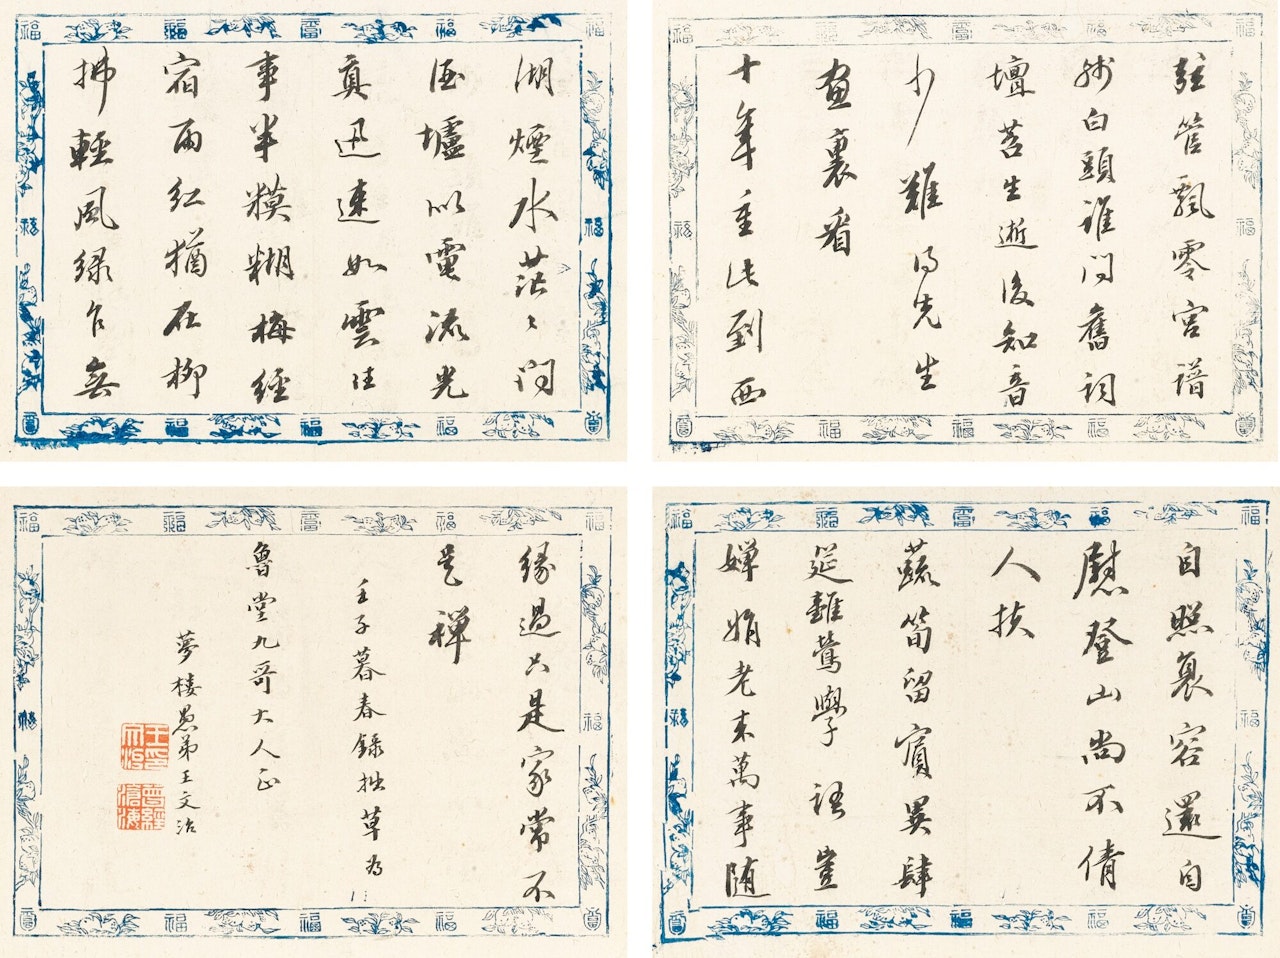 絃管飄零宮譜
殘白頭誰問舊詞
壇苔生逝後知音
少難得先生
畫裏看
十年重此到西
湖煙水茫〻問
酒壚似電流光
真迅速如雲往
事半糢糊梅經
宿雨紅猶在柳
拂輕風綠乍無
自照衰容還自
慰登山尚不倩
人扶
蔬筍留賓異肆
筵雛鶯學語豈
嬋娟老來萬事隨
緣過只是家常不
是禪
壬子暮春錄拙草為
魯堂九哥大人正
夢樓愚弟王文治
王印文治
曾經滄海